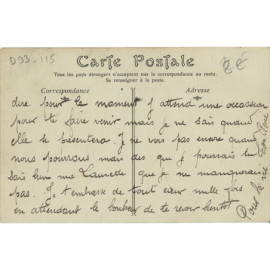 D93-115
8€
Carte Postale
Tous les pays étrangers n'acceptent pas la correspondance au recto.
Se renseigner à la poste.
Correspondance
Adresse
dire pour le moment j'attend une occasion
pour te faire venir mais je ne sais quand
elle se présentera je ne vois pas encore quand
nous pourrons mais des que je pourrais tu
sais bien ma Laurette que je ne manquerais
pas. Je t'embrasse de tout cœur mille fois
en attendant le bonheur de te revoir bientôt
Pour la vie